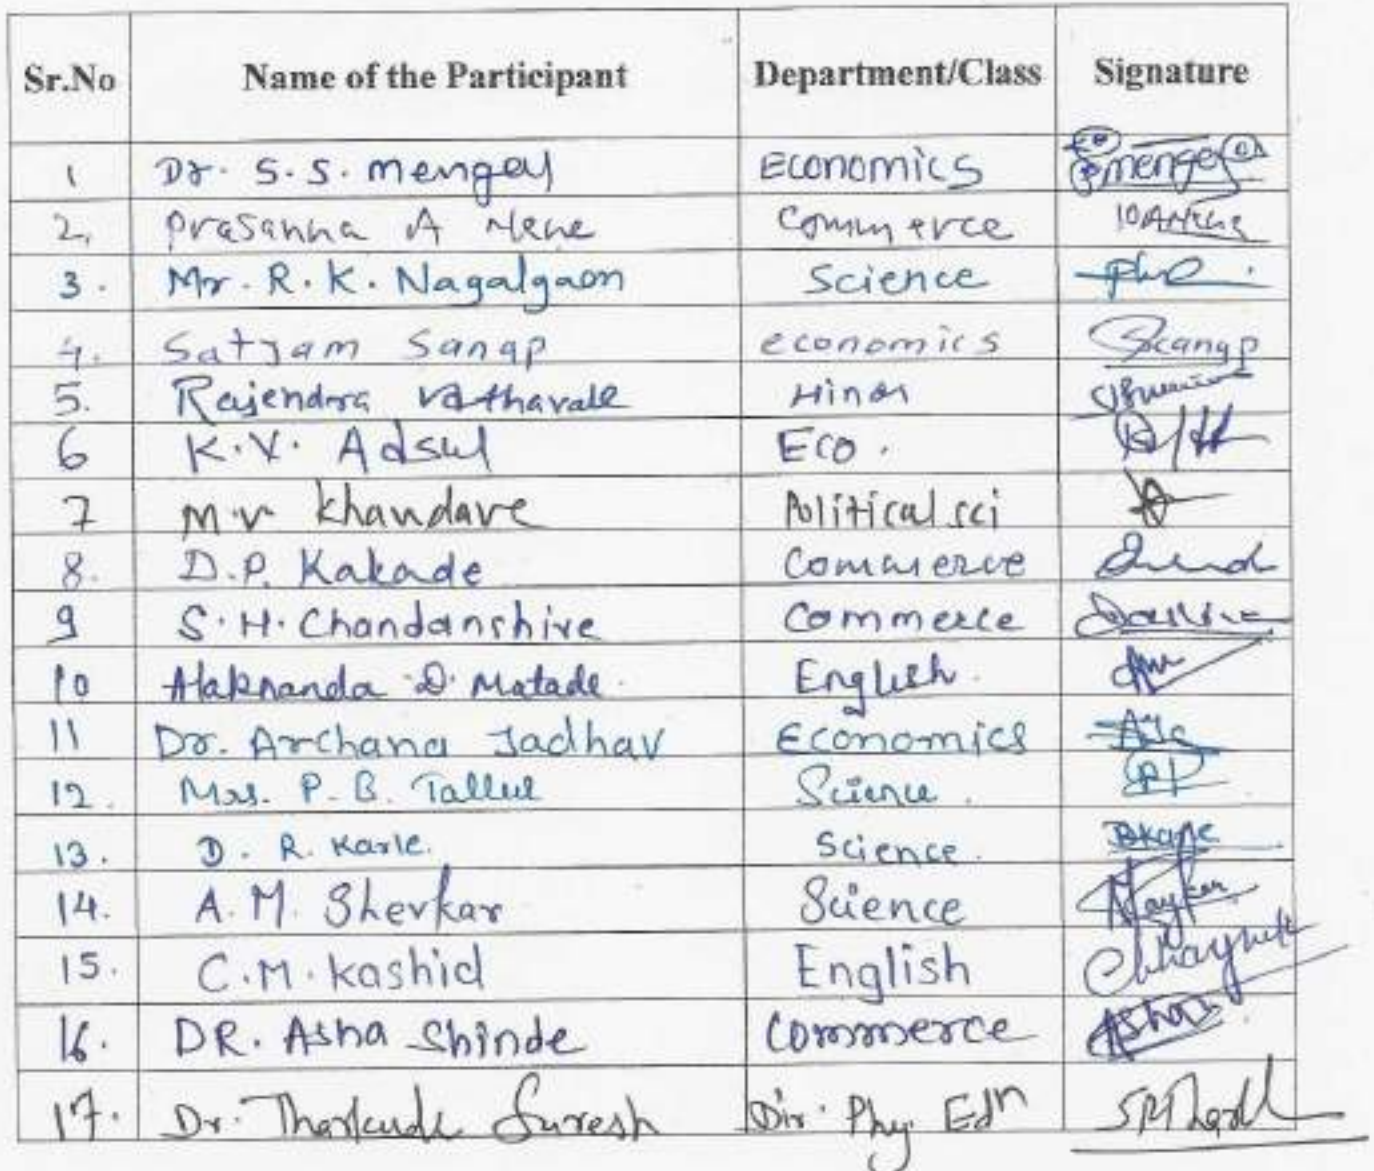 Sr.No Name of the Participant Department/Class Signature
1 Dr. S. S. Mengal Economics
2. Prasanna A Nene Commerce
3. Mr. R. K. Nagalgaon Science
4. Satyam Sanap economics Sanap
5. Rajendra Hindi
6 K.V. Adsul Eco.
7 M V Khandare Political sci
8. D.P. Kakade Commerce
9 S.H. Chandanshive Commerce
10 Alaknanda D. Matade. English.
11 Dr. Archana Jadhav Economics
12. Mrs. P. B. Tallul Science.
13. D. R. Karle. Science.
14. A.M. Shevkar Science
15. C.M. Kashid English
16. DR. Asha Shinde Commerce Asha
17. Dr. Tharkude Suresh Dir. Phy. Edn